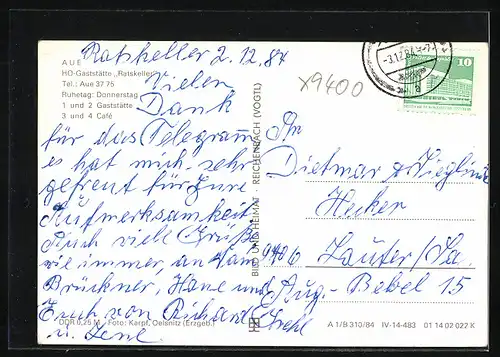 Ratskeller 2.12.84
AUE
HO-Gaststätte „Ratskeller"
Tel.: Aue 37 75
Ruhetag: Donnerstag
1 und 2 Gaststätte
3 und 4 Café
Vielen
Dank
für das Telegramm,
es hat mich sehr
gefreut für Eure
Aufmerksamkeit.
Auch viele Grüße
wie immer, an Fam.
Brückner, Hane und
Euch von Richard
u. Lene
DDR 0,25 M · Foto: Karpf, Oelsnitz (Erzgeb.)
BILD UND HEIMAT REICHENBACH (VOGTL)
x9400
-3.12.84
10
An
Dietmar & Sieglinde
Hecker
9406 Lauter/Sa.
Aug.-Bebel 15
A 1/B 310/84 IV-14-483 01 14 02 022 K